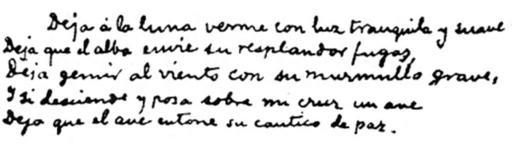 Deja á la luna verme con luz tranquila y suave
Deja que el alba envíe su resplandor fugaz,
Deja gemir al viento con su murmullo grave,
Y si desciende y posa sobre mi cruz un ave
Deja que el ave entone su cantico de paz.